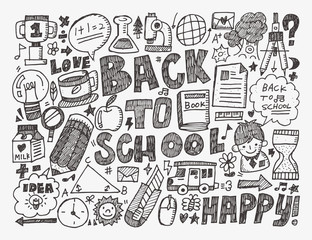 1
1+1=2
LOVE
BACK
TO
SCHOOL
Book
BACK
TO
SCHOOL
?
!
MILK
A
B
C
IDEA
HAPPY!